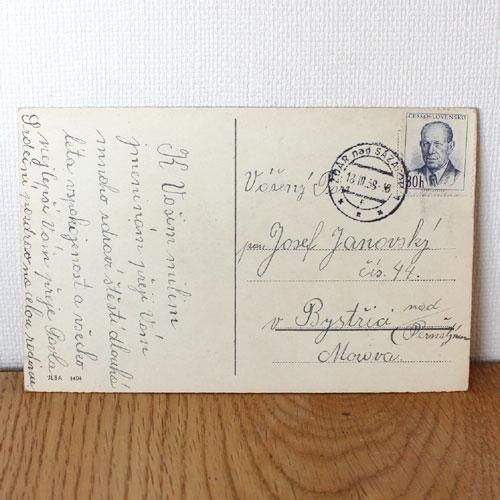 K Vašim milim
jmeninám přeji Vám
mnoho zdraví štěstí dlouhá
léta spokojenost a všecko
nejlepší Vám přeje Pavla
Srdečni pozdrav na celou rodinu.
JLBA 1404
ČESKOSLOVENSKO
30h
ŽĎÁR nad SÁZAVOU 1
18.III.58-18
Vážený Pan
pan Josef Janovský
čís. 44.
v Bystřici nad
Pernštýnem
Morava